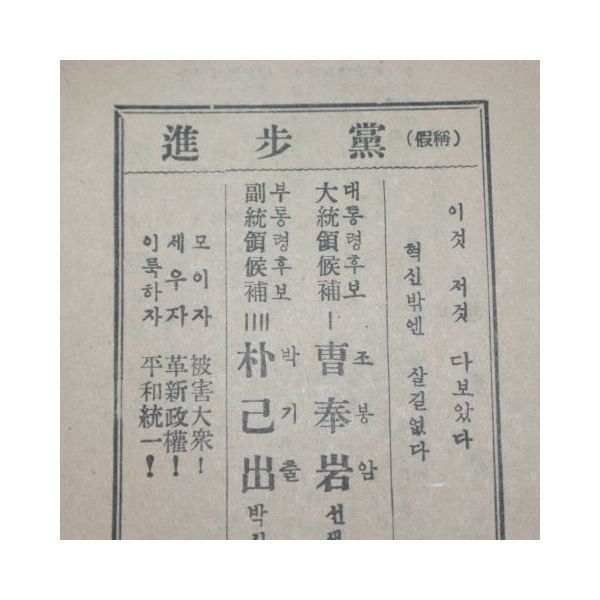 進步黨 (假稱)
이것 저것 다보았다
혁신밖엔 살길없다
대통령후보 조봉암
大統領候補 | 曺奉岩 선생
부통령후보 박기출
副統領候補 |||| 朴己出 박사
모이자 被害大衆!
세우자 革新政權!
이룩하자 平和統一!